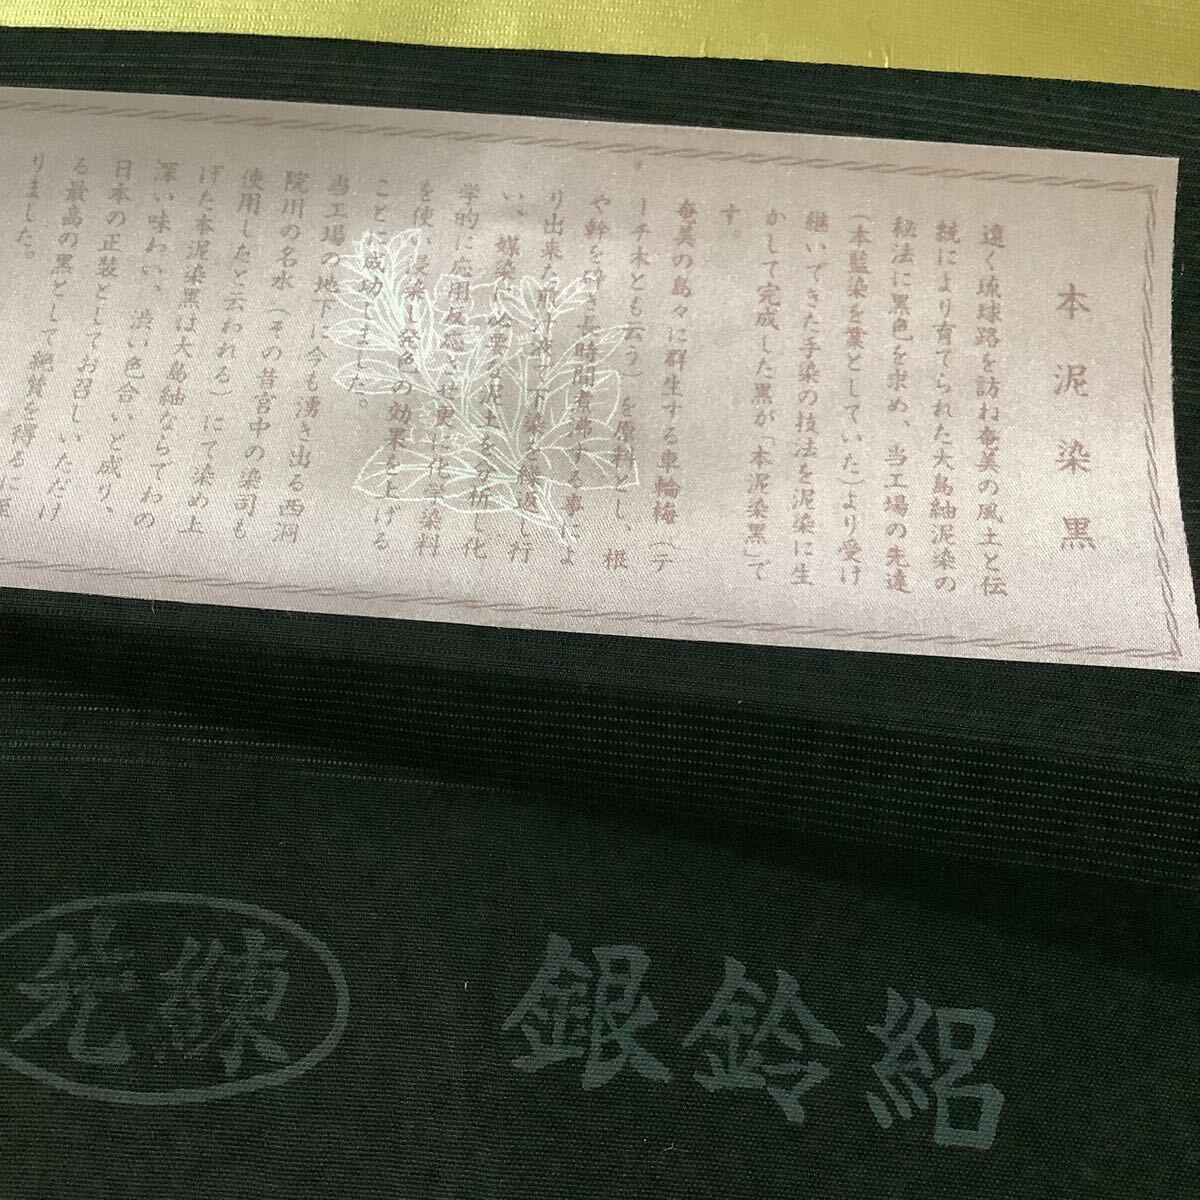 本泥染黒
遠く琉球路を訪ね奄美の風土と伝
統により育てられた大島紬泥染の
秘法に黒色を求め、当工場の先達
(本藍染を業としていた)より受け
継いできた手染の技法を泥染に生
かして完成した黒が「本泥染黒」で
す。
奄美の島々に群生する車輪梅(テ
ーチ木とも云う)を原料とし、根
や幹を砕き長時間煮沸する事によ
り出来た原汁液で下染を繰返し行
い、媒染に必要な泥土を分析し化
学的に応用反応させ更に化学染料
を使い浸染し発色の効果を上げる
ことに成功しました。
当工場の地下に今も湧き出る西洞
院川の名水(その昔宮中の染司も
使用したと云われる)にて染め上
げた本泥染黒は大島紬ならでわの
深い味わい、渋い色合いと成り、
日本の正装としてお召しいただけ
る最高の黒として絶賛を得るに至
りました。
先練
銀鈴絽